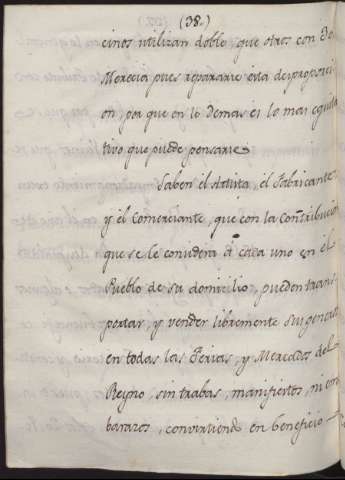 (38.)
cinos utilizan doble, que otros con do
Merecia pues repararse esta desproporci
on, por que en lo demas es lo mas equita
tivo que puede pensarse
Saben el Artista, el Fabricante
y el Comerciante, que con la Contribucion
que se le considera á cada uno en el
Pueblo de su domicilio, pueden trans
portar, y vender libremente sus generos
en todas las Ferias, y Mercados del
Reyno, sin trabas, manifiestos, ni em
barazos, convirtiend en beneficio